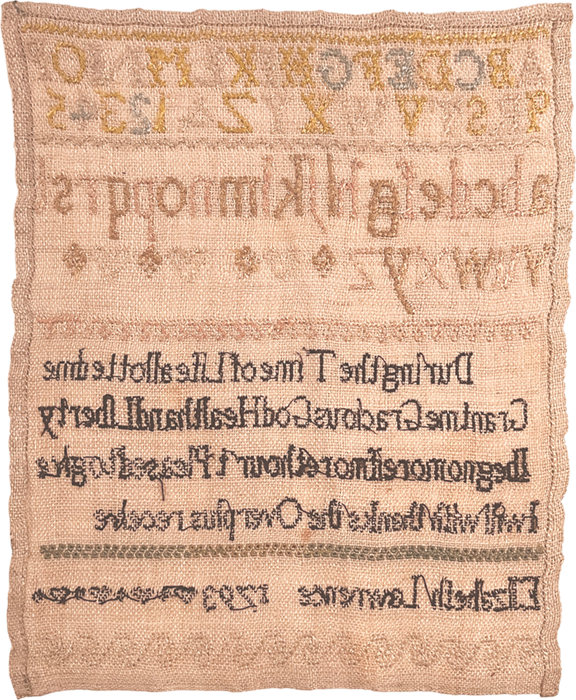 A B C D E F G H I K L M N O
P Q R S T V W X Y Z & 1 2 3 4 5
a b c d e f g h i j k l m n o p q r s
During the Time of Life allotted me
Grant me Gracious God Health and Liberty
I beg no more if more thou'rt Pleased to give
I will with thanks the Overplus receive
Elizabeth Lawrence 1793